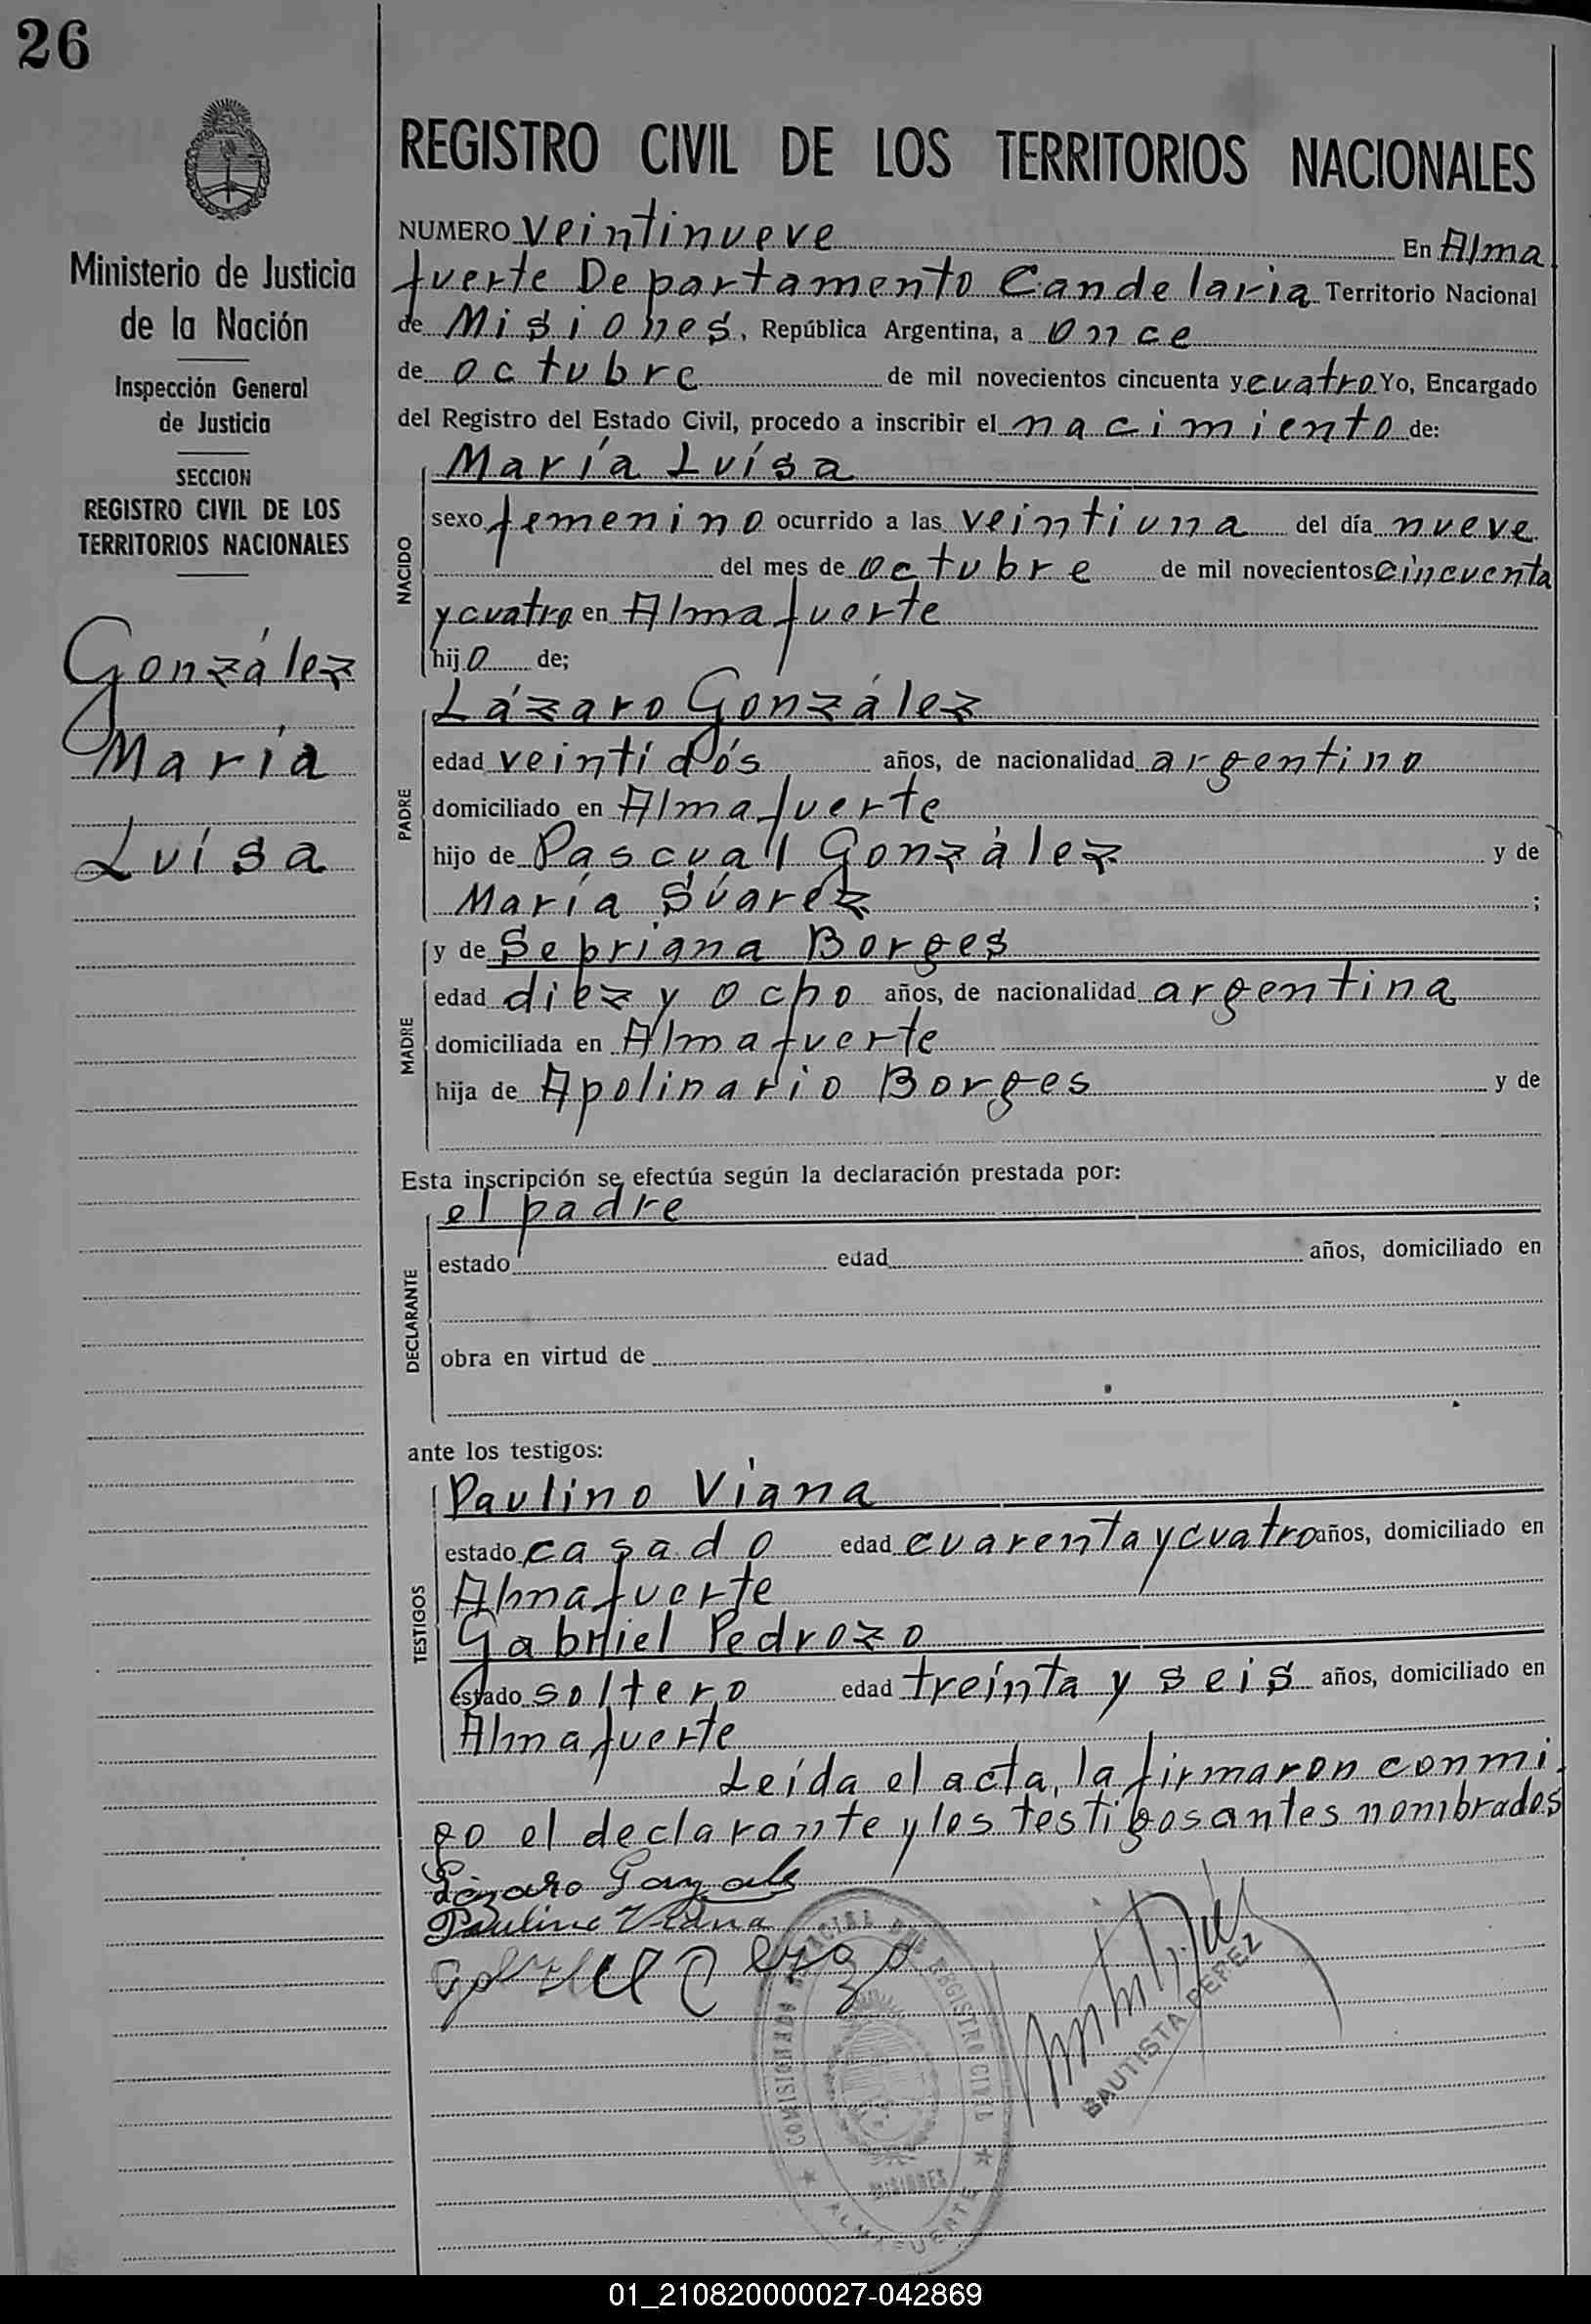 26
Ministerio de Justicia
de la Nación
Inspección General
de Justicia
SECCION
REGISTRO CIVIL DE LOS
TERRITORIOS NACIONALES
González
María
Luísa
REGISTRO CIVIL DE LOS TERRITORIOS NACIONALES
NUMERO veintinueve En Alma
fuerte Departamento Candelaria Territorio Nacional
de Misiones, República Argentina, a once
de octubre de mil novecientos cincuenta y cuatro Yo, Encargado
del Registro del Estado Civil, procedo a inscribir el nacimiento de:
María Luísa
NACIDO
sexo femenino ocurrido a las veintiuna del día nueve
del mes de octubre de mil novecientos cincuenta
y cuatro en Almafuerte
hijo de;
Lázaro González
PADRE
edad veintidós años, de nacionalidad argentino
domiciliado en Almafuerte
hijo de Pascual González y de
María Súarez ;
y de Sepriana Borges
MADRE
edad diez y ocho años, de nacionalidad argentina
domiciliada en Almafuerte
hija de Apolinario Borges y de
Esta inscripción se efectúa según la declaración prestada por:
el padre
DECLARANTE
estado edad años, domiciliado en
obra en virtud de
ante los testigos:
Paulino Viana
TESTIGOS
estado casado edad cuarenta y cuatro años, domiciliado en
Almafuerte
Gabriel Pedrozo
estado soltero edad treínta y seis años, domiciliado en
Almafuerte
Leída el acta, la firmaron conmi
go el declarante y los testigos antes nombrados
Lázaro Gonzalez
Paulino Viana
BAUTISTA PEREZ
REGISTRO CIVIL
MISIONES
ALMAFUERTE
01_210820000027-042869